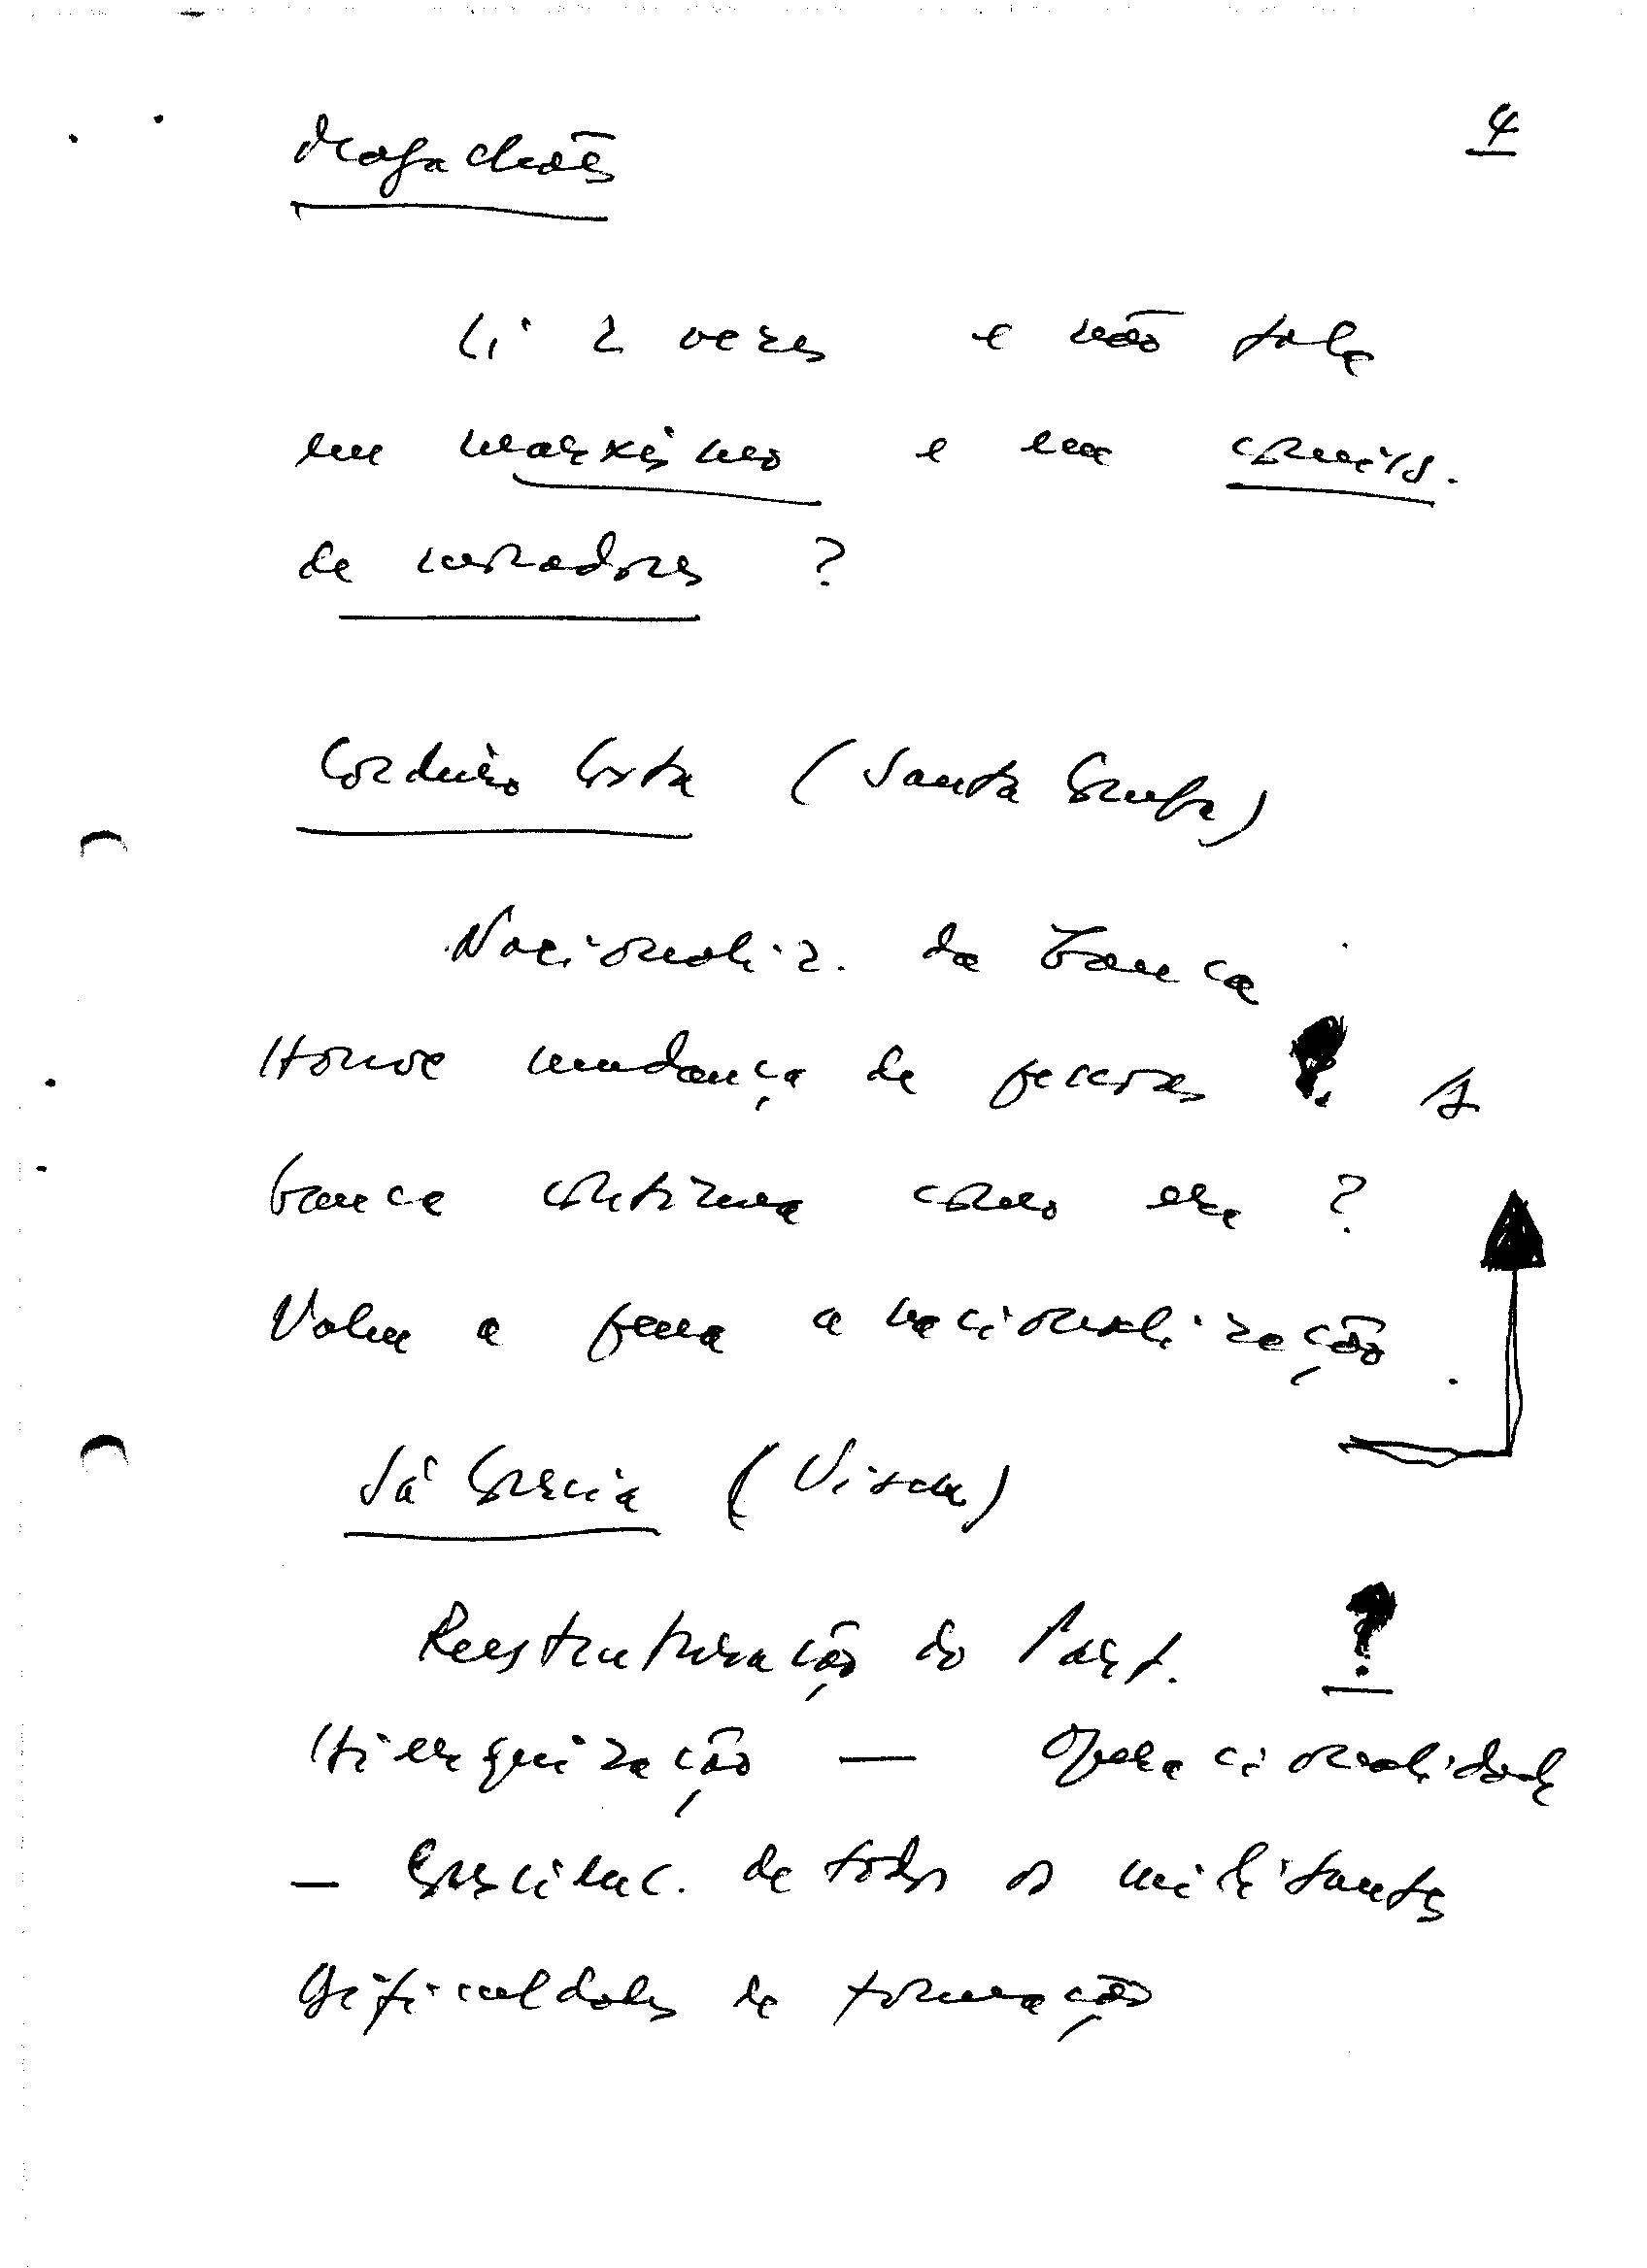 4
Magalhães
Li 2 vezes e não fala
em marxismo e em comiss.
de moradores ?
Cordeiro Costa (Santa
Nacionaliz. da banca
Houve mudança de pessoas ? A
banca continua como era ?
Valeu a pena a nacionalização
Sá Correia (Viseu)
Reestruturação do Part. ?
Hierquização — Operacionalidade
— Conscienc. de todos os militantes
Dificuldades de formação